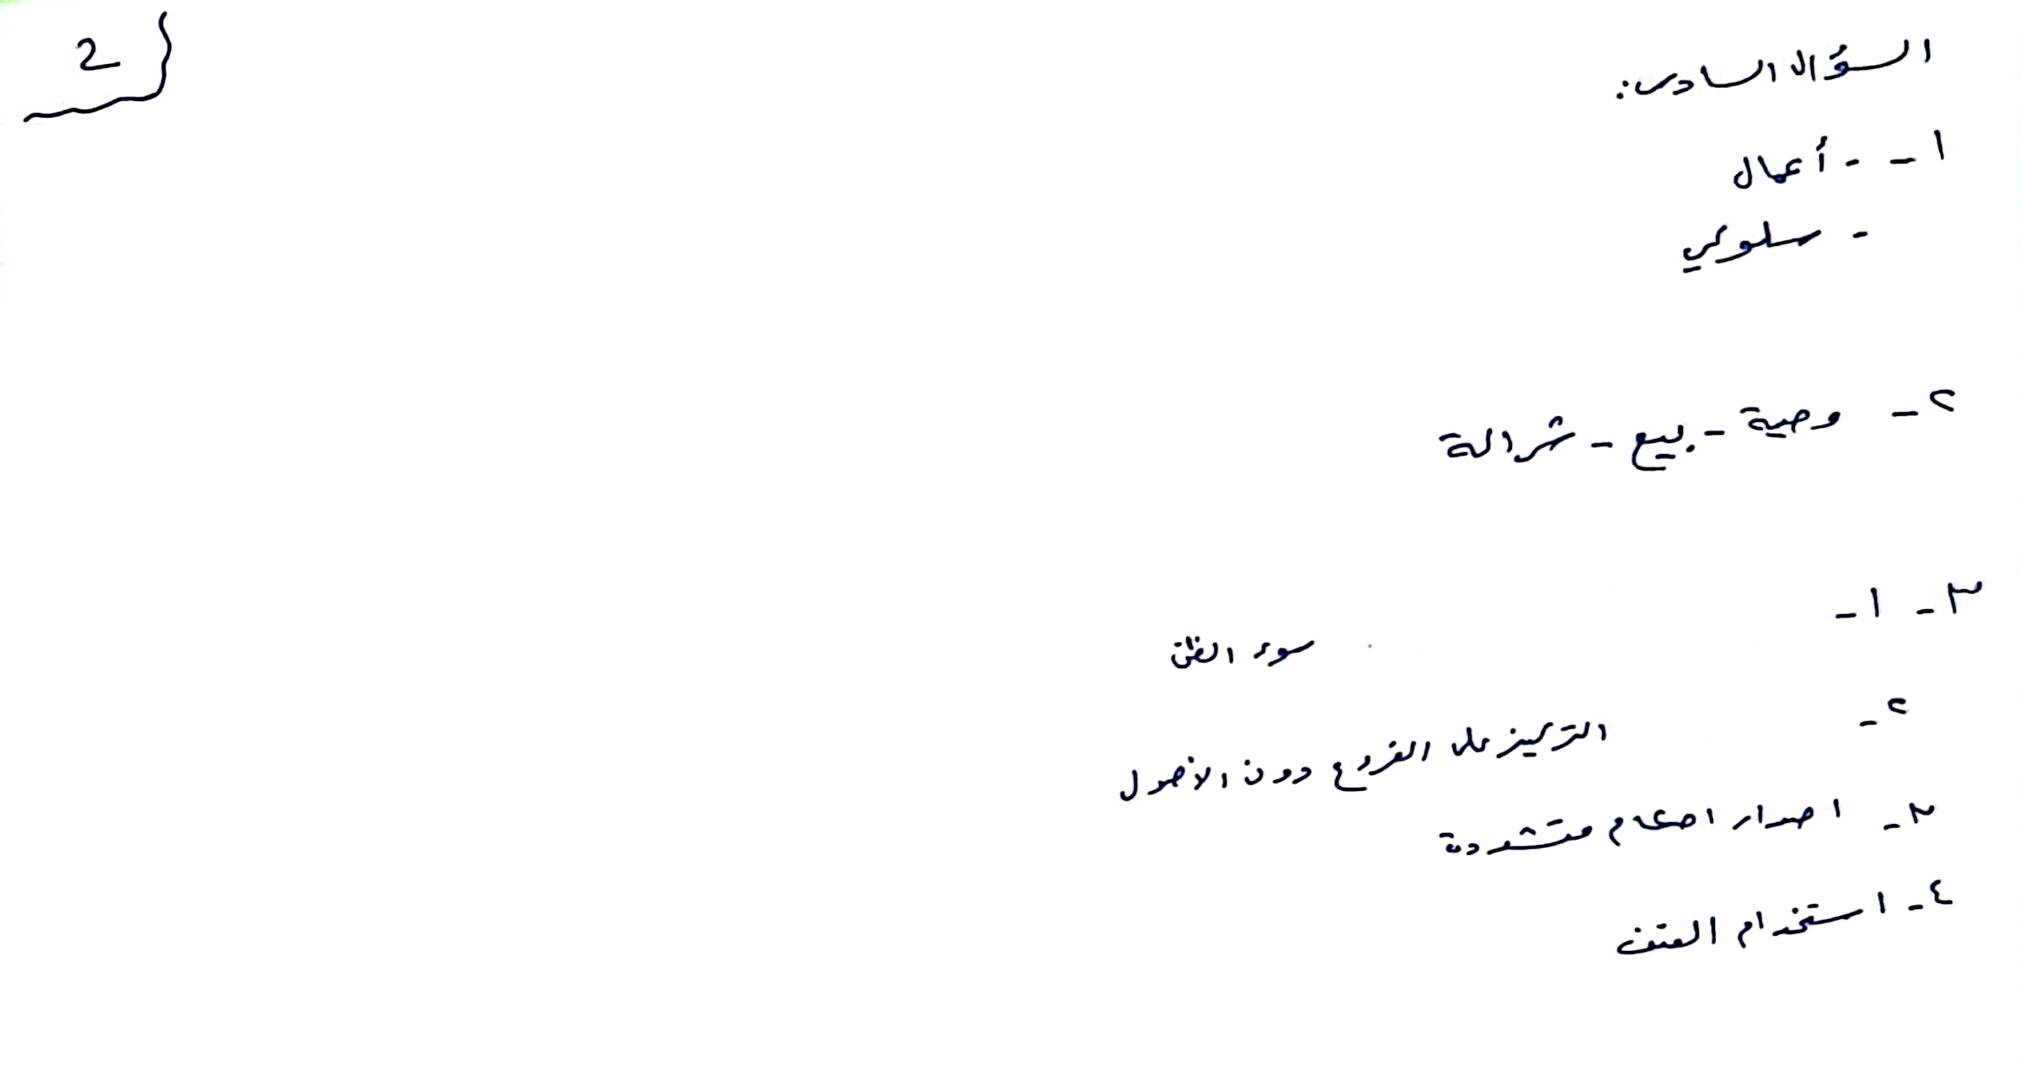 2
السؤال السادس:
١ - - أعمال
- سلوكي
٢ - وصية - بيع - شراكة
٣ - ١ -
سوء الظن
٢ -
التركيز على الفروع دون الأصول
٣ - اصدار احكام متشددة
٤ - استخدام العنف